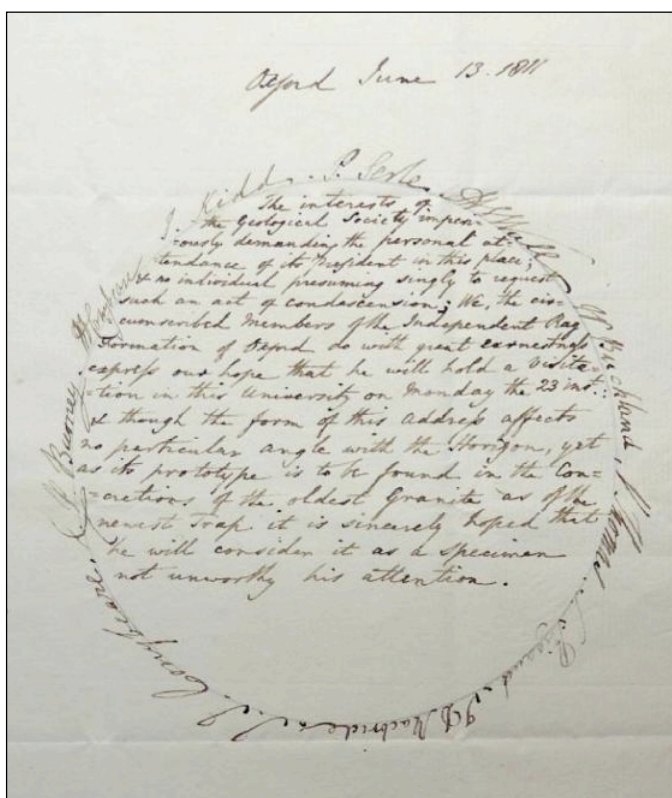 Oxford June 13. 1811
The interests of
the Geological Society imperi-
ously demanding the personal at-
tendance of its President in this place;
& no individual presuming singly to request
such an act of condascension; We, the cir-
cumscribed Members of the Independent Rag
Formation of Oxford do with great earnestness
express our hope that he will hold a Visita-
-tion in this University on Monday the 23 inst.:
& though the form of this Address affects
no particular angle with the Horizon, yet
as its prototype is to be found in the Con=
=cretions of the oldest Granite as of the
newest Trap it is sincerely hoped that
he will consider it as a specimen
not unworthy his attention.
J. Kidd. P. Serle. W Buckland, S. P. Rigaud. J D Macbride. J. J. Conybeare. Burney